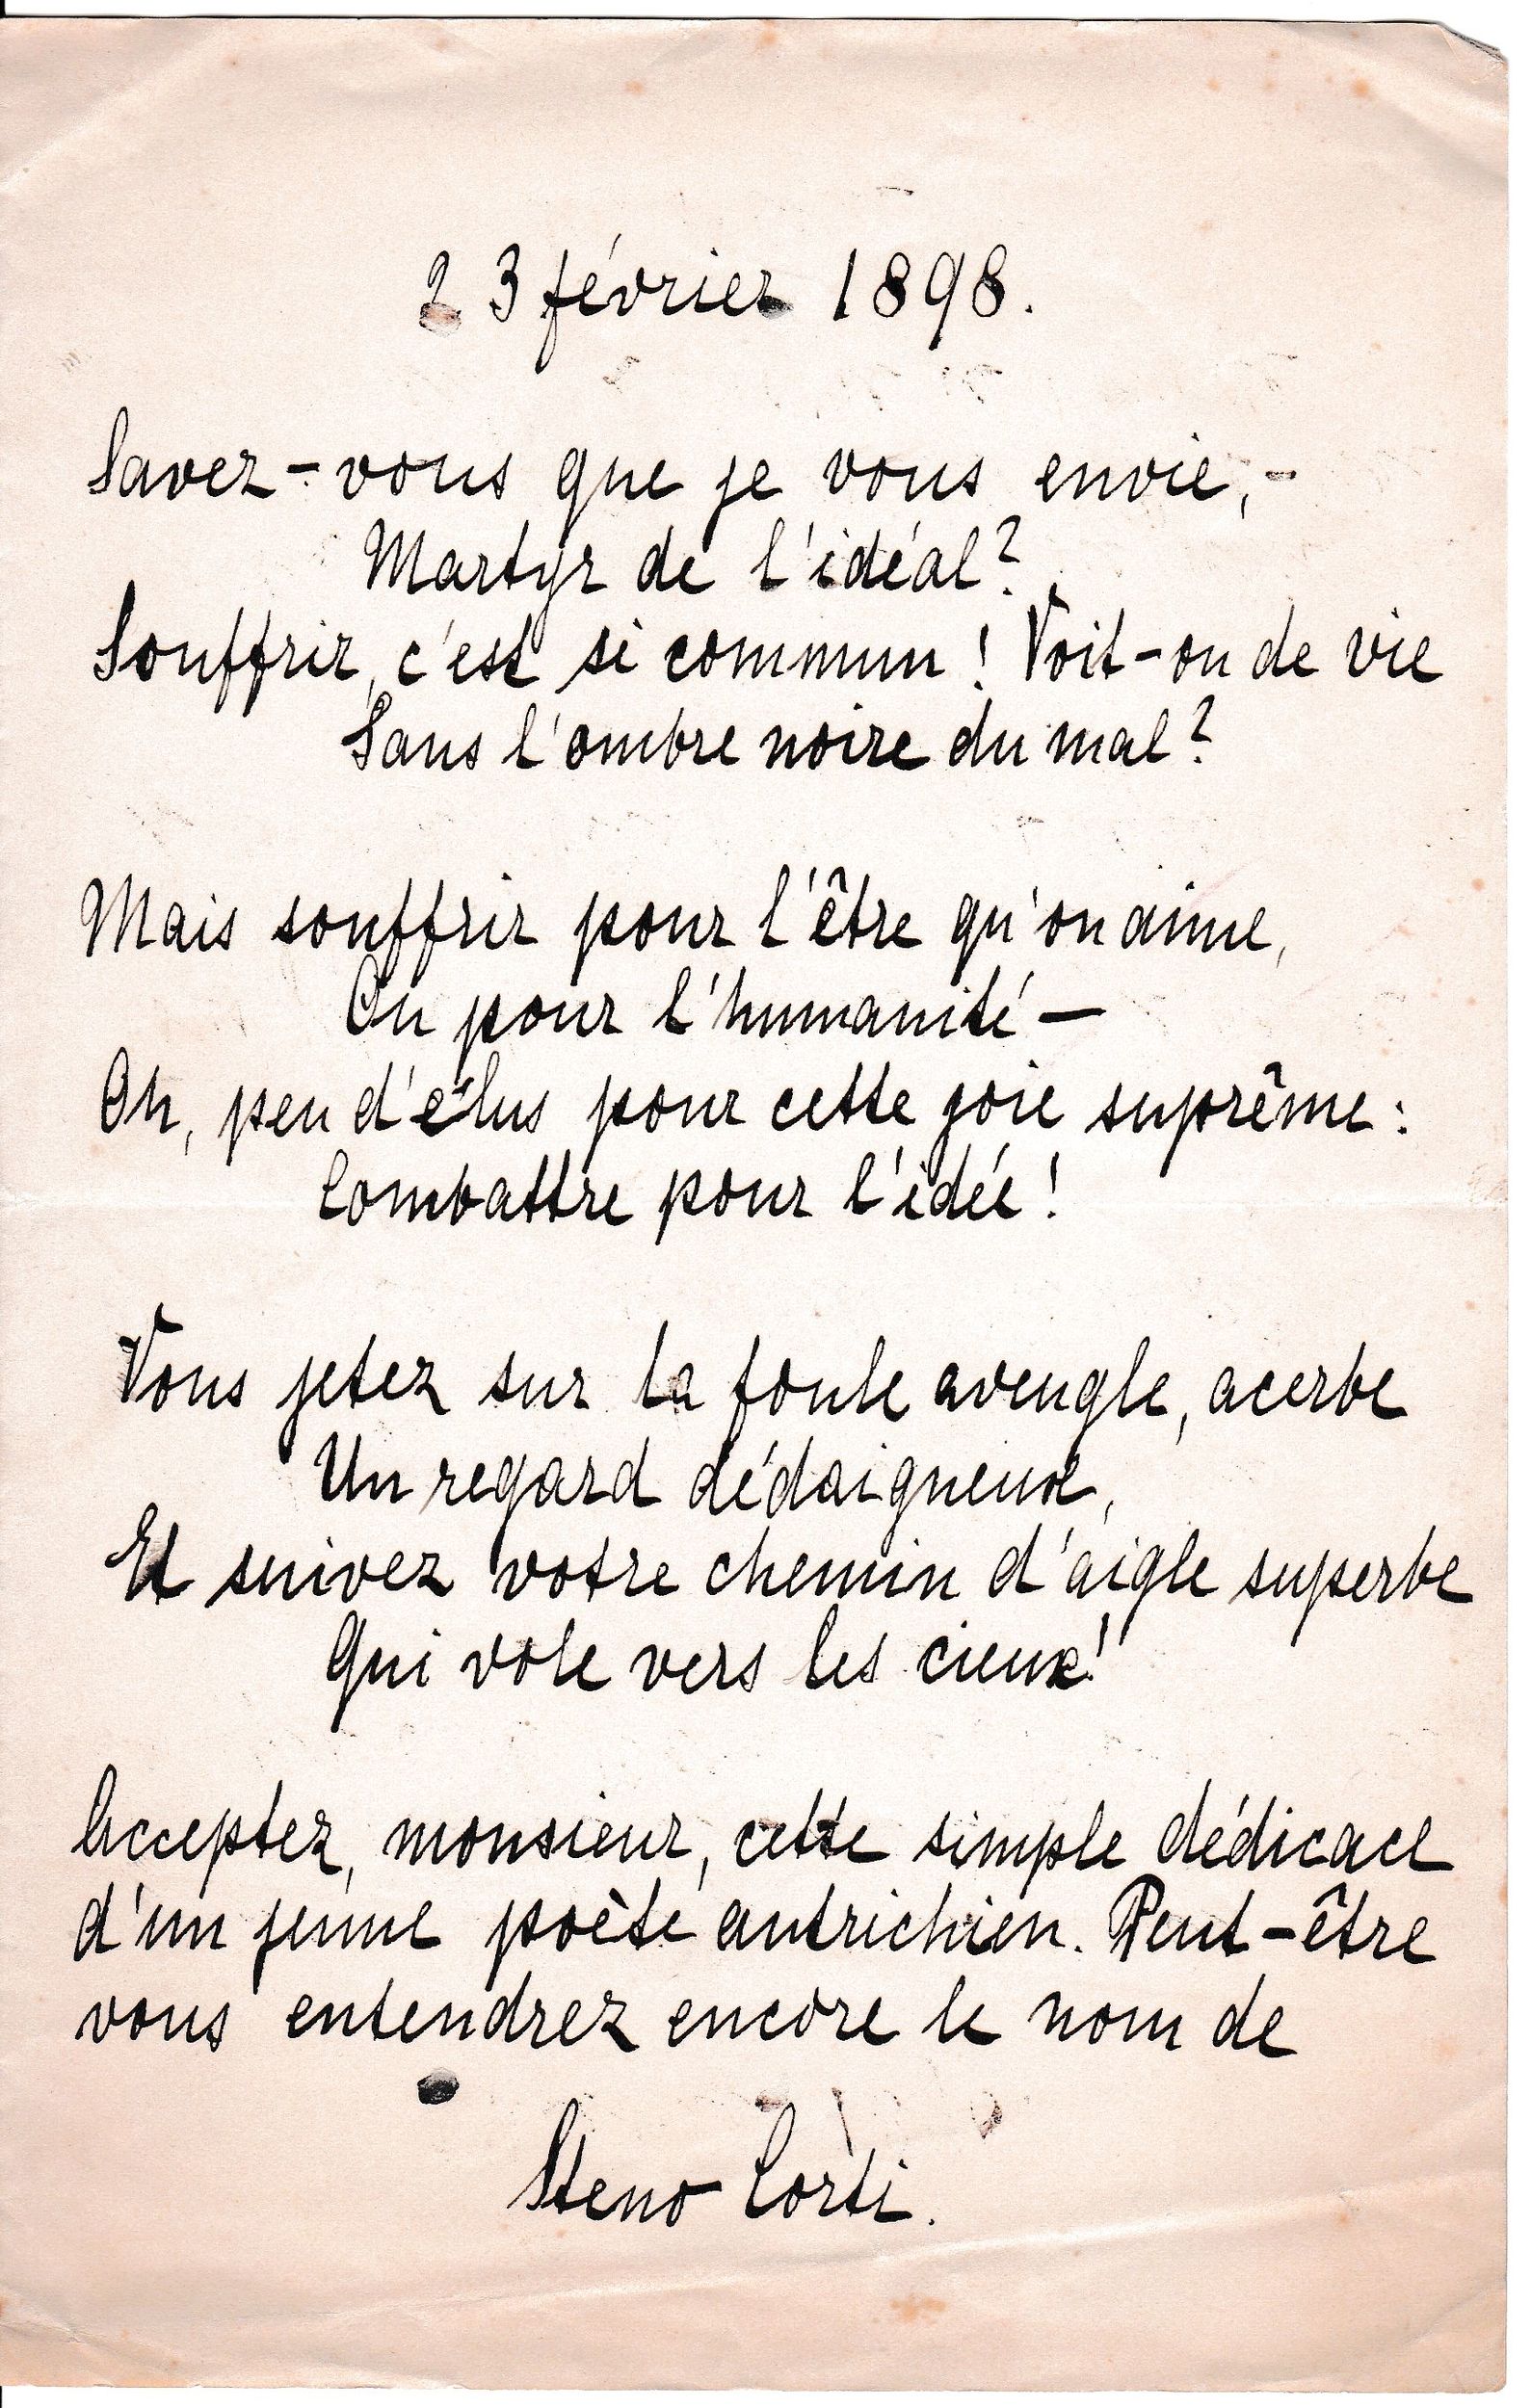 23 février 1898.
Savez-vous que je vous envie,-
Martyr de l'idéal?
Souffrir, c'est si commun! Voit-on de vie
Sans l'ombre noire du mal?
Mais souffrir pour l'être qu'on aime,
Ou pour l'humanité —
Oh, peu d'élus pour cette joie suprême:
Combattre pour l'idée!
Vous jetez sur la foule aveugle, acerbe
Un regard dédaigneux,
Et suivez votre chemin d'aigle superbe
Qui vole vers les cieux!
Acceptez, monsieur, cette simple dédicace
d'un jeune poète autrichien. Peut-être
vous entendrez encore le nom de
Steno Corti.